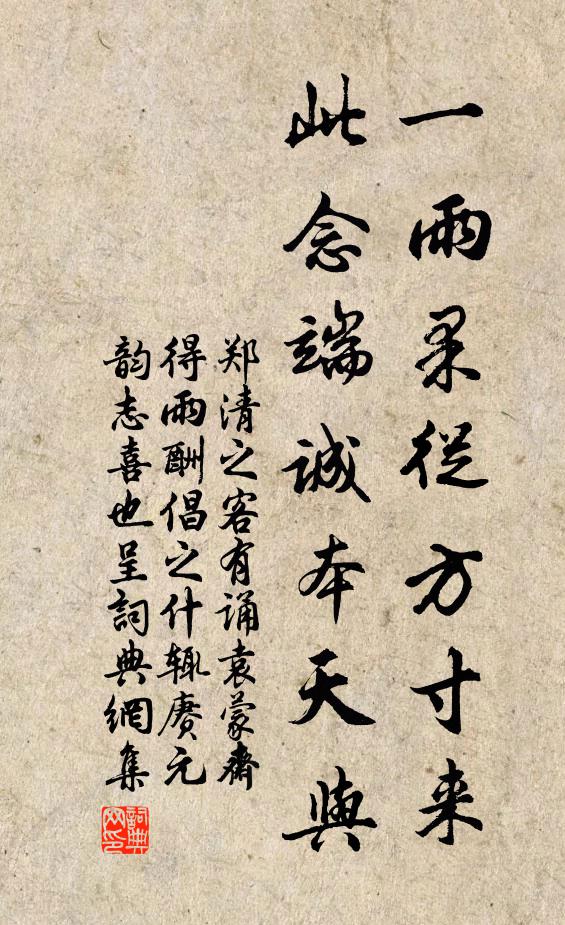 一雨果從方寸来
此念端誠本天與
郑清之客有诵袁蒙齋
得雨酬倡之什辄赓元
韵志喜也呈詞典網集
詞典
网印